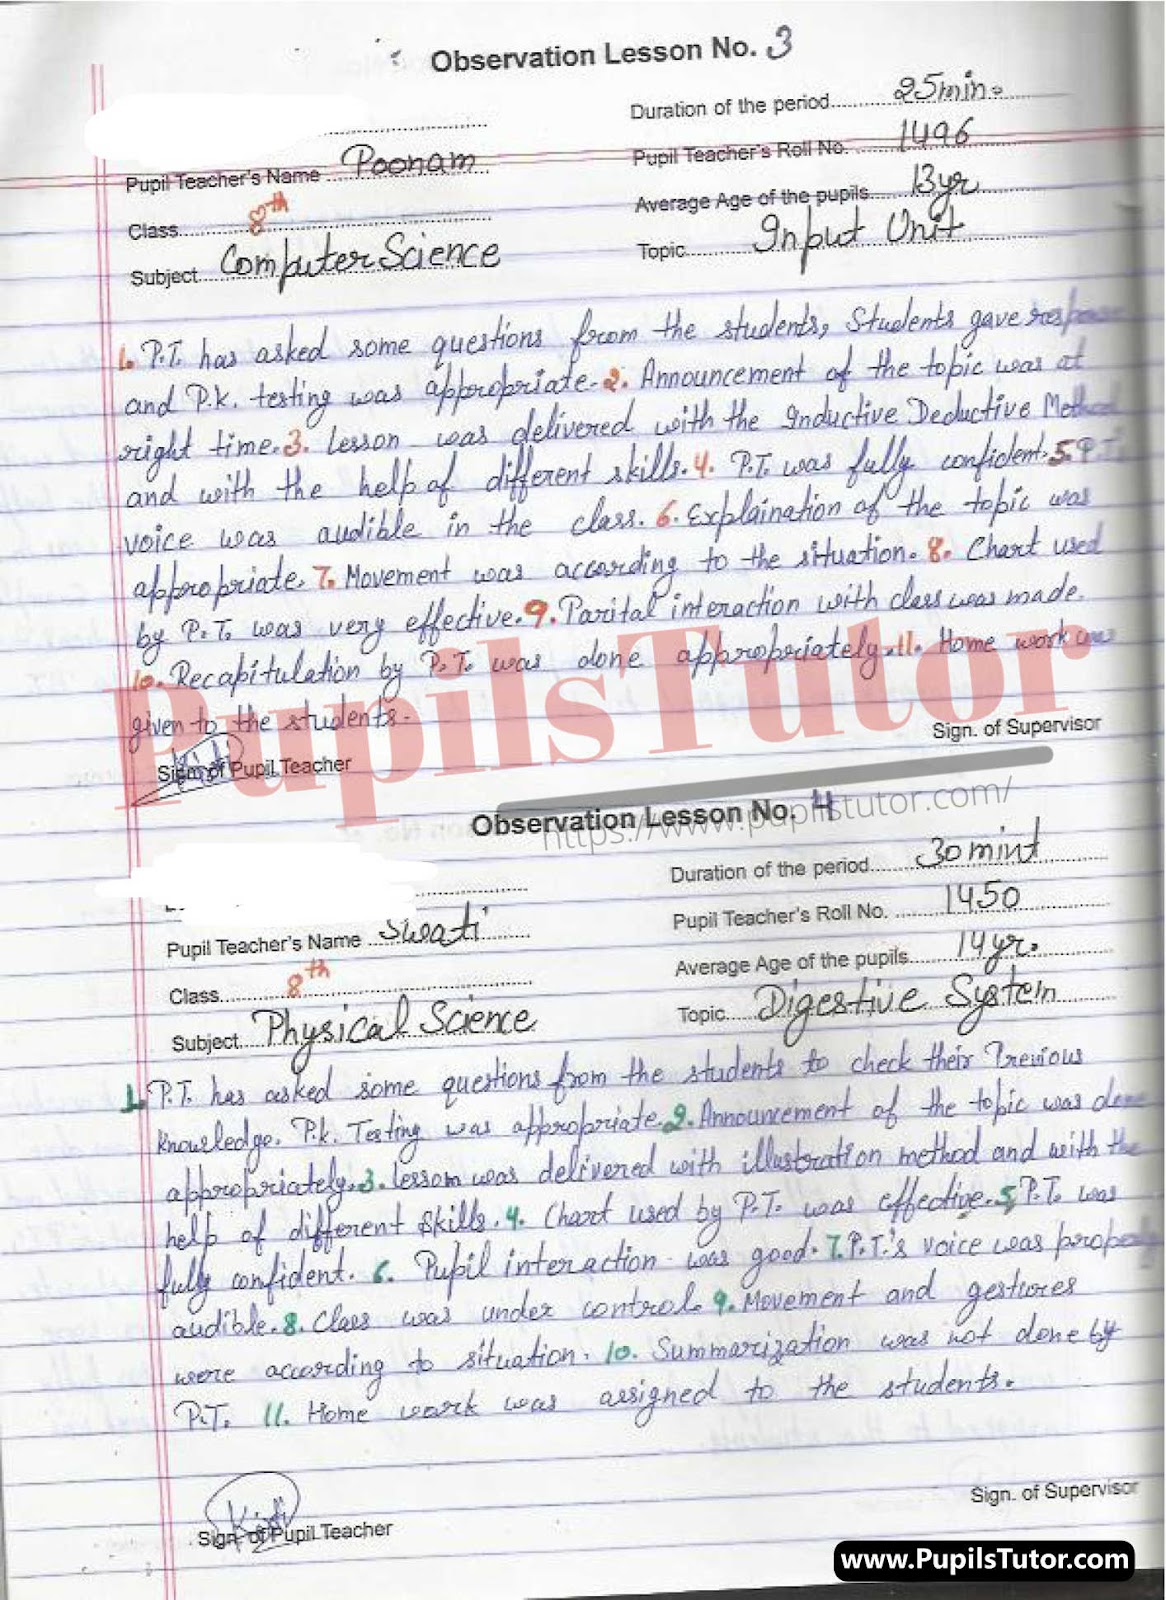 Observation Lesson No. 3
Duration of the period 25 min.
Pupil Teacher's Name Poonam
Pupil Teacher's Roll No. 1496
Class 8th
Average Age of the pupils 13 yr
Subject Computer Science
Topic Input Unit
1. P.T. has asked some questions from the students, Students gave response
and P.K. testing was appropriate. 2. Announcement of the topic was at
right time. 3. Lesson was delivered with the Inductive Deductive Method
and with the help of different skills. 4. P.T. was fully confident. 5. P.T.'s
voice was audible in the class. 6. Explaination of the topic was
appropriate. 7. Movement was according to the situation. 8. Chart used
by P.T. was very effective. 9. Parital interaction with class was made.
10. Recapitulation by P.T. was done appropriately. 11. Home work was
given to the students.
Sign. of Supervisor
Sign. of Pupil Teacher
PupilsTutor
https://www.pupilstutor.com/
Observation Lesson No. 4
Duration of the period 30 mint
Pupil Teacher's Name Swati
Pupil Teacher's Roll No. 1450
Class 8th
Average Age of the pupils 14 yr.
Subject Physical Science
Topic Digestive System
1. P.T. has asked some questions from the students to check their Previous
Knowledge. P.K. Testing was appropriate. 2. Announcement of the topic was done
appropriately. 3. Lesson was delivered with illustration method and with the
help of different skills. 4. Chart used by P.T. was effective. 5. P.T. was
fully confident. 6. Pupil interaction was good. 7. P.T.'s voice was properly
audible. 8. Class was under control. 9. Movement and gestures
were according to situation. 10. Summarization was not done by
P.T. 11. Home work was assigned to the students.
Sign. of Supervisor
Sign. of Pupil Teacher
www.PupilsTutor.com